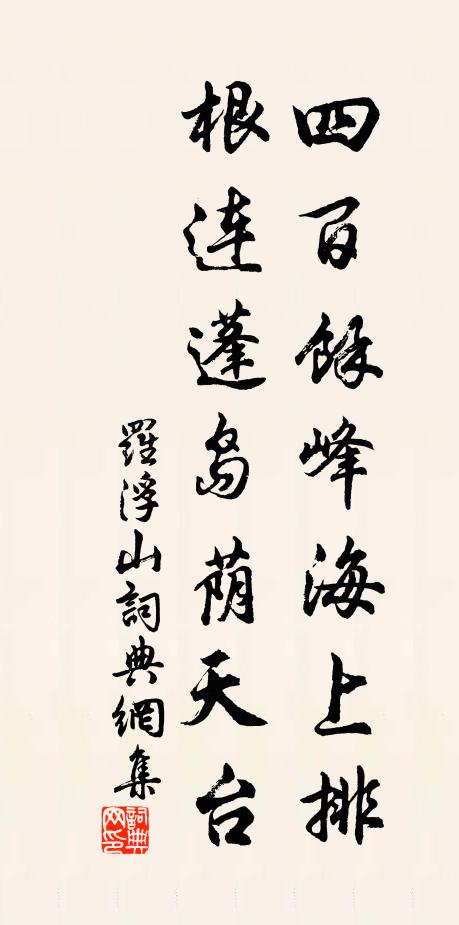 四百餘峰海上排
根連蓬島荫天台
羅浮山詞典網集
詞典
网印